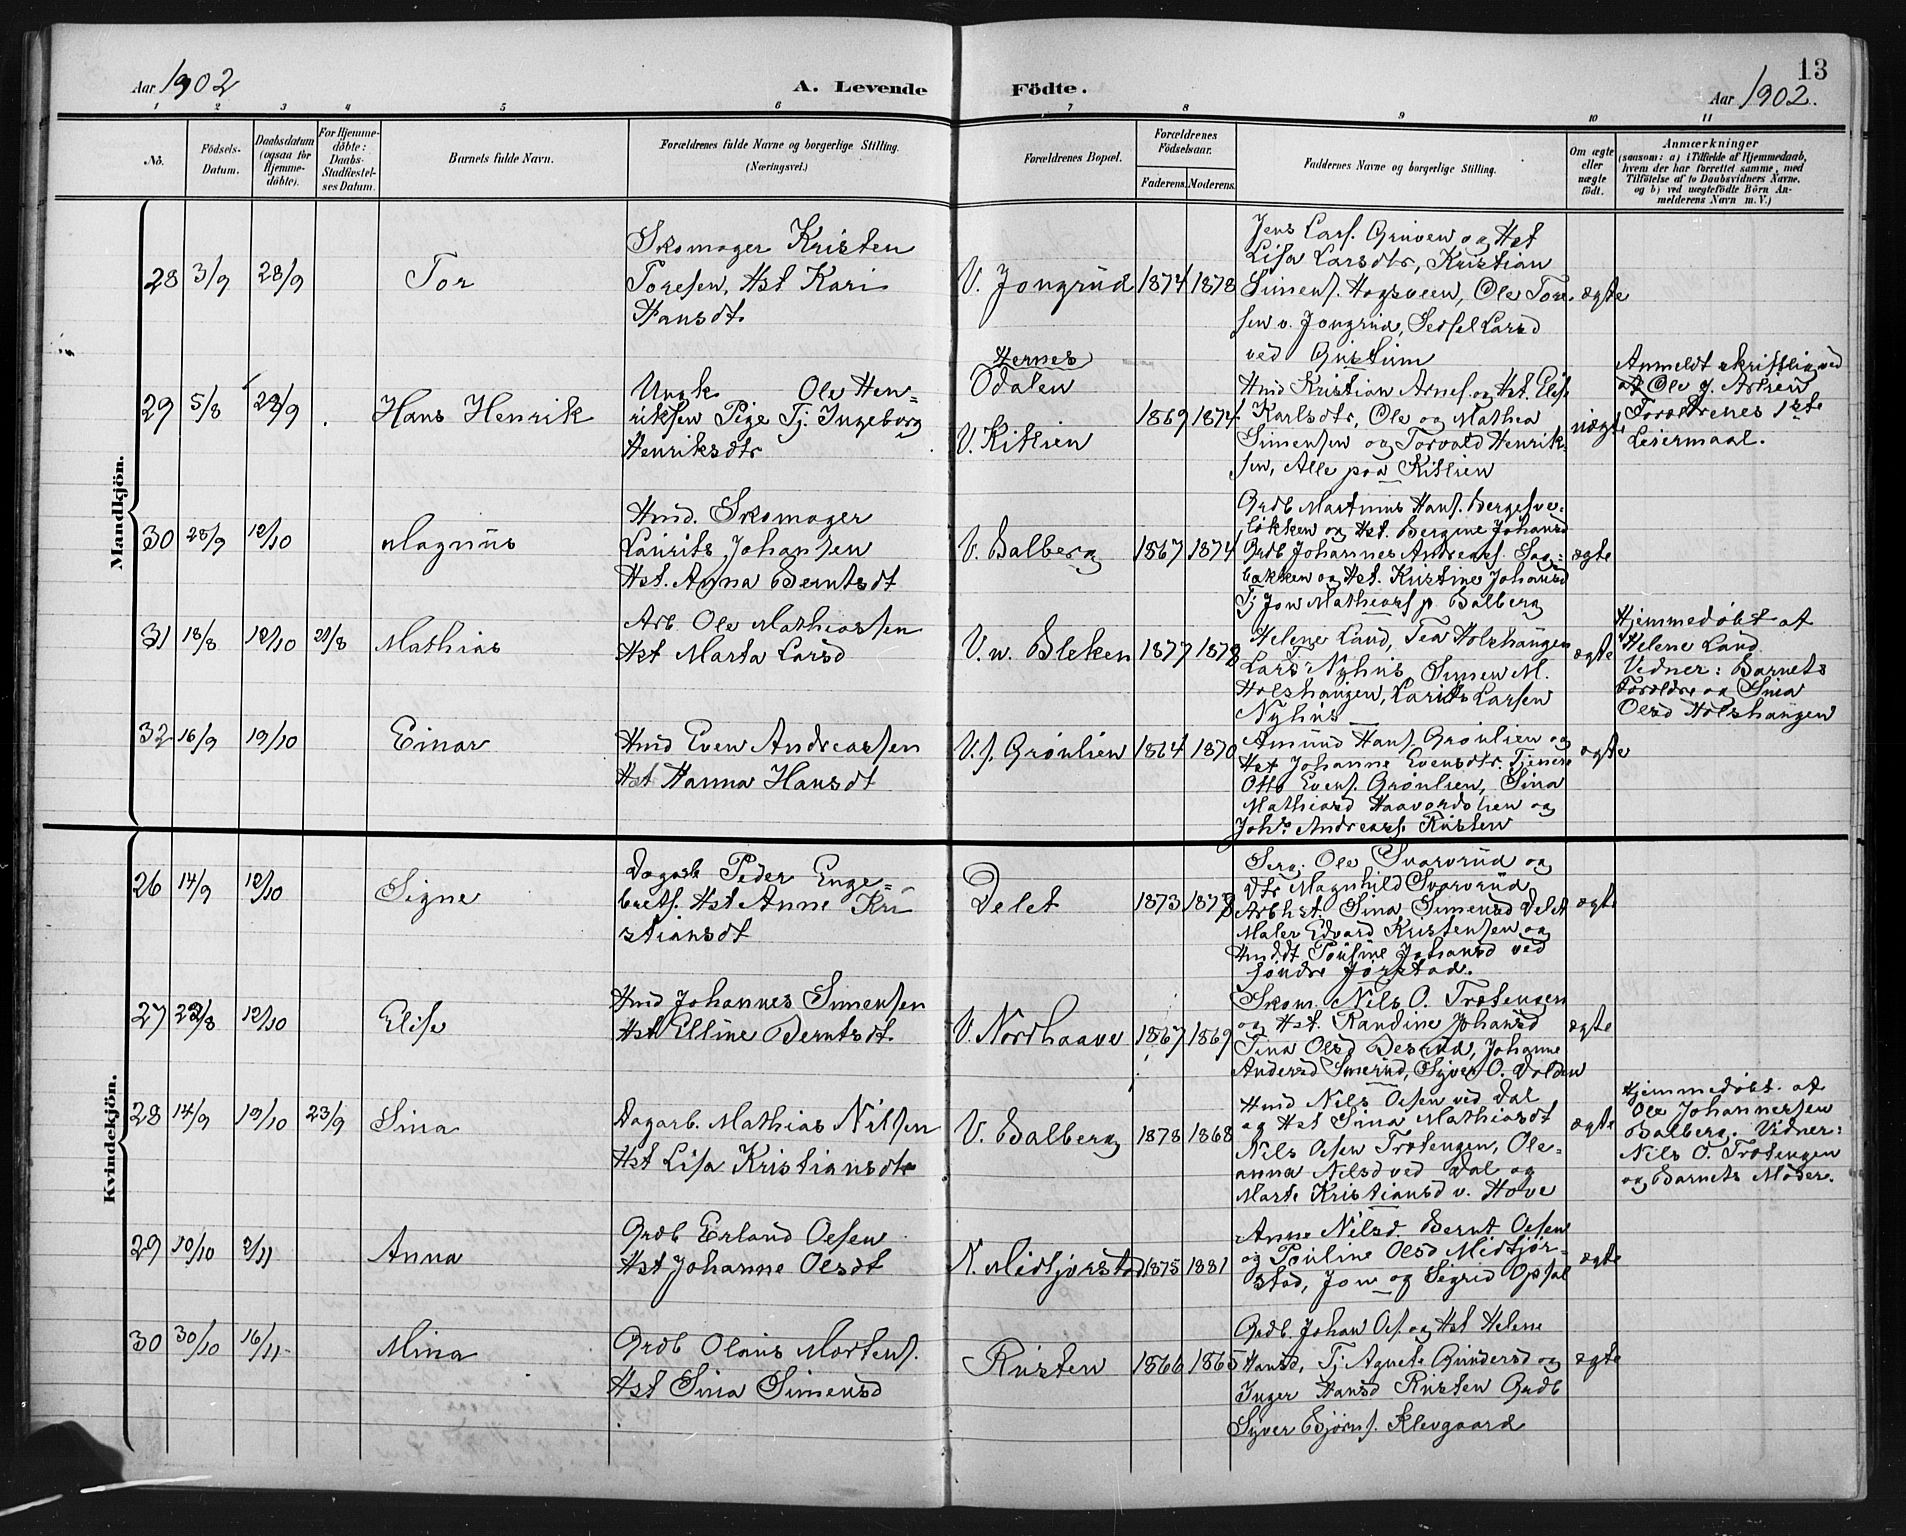 Aar 1902
A. Levende Födte.
13
Aar 1902.
1 2 3 4 5 6 7 8 9 10 11
No.
Födsels-Datum.
Daabsdatum (ogsaa for Hjemme-döbte).
For Hjemme-döbte: Daabs-Stadfæstel-ses Datum.
Barnets fulde Navn.
Forældrenes fulde Navne og borgerlige Stilling. (Næringsvei.)
Forældrenes Bopæl.
Forældrenes Födselsaar.
Faderens. Moderens.
Faddernes Navne og borgerlige Stilling.
Om ægte eller uægte födt.
Anmærkninger
(saasom: a) i Tilfælde af Hjemmedaab,
hvem der har forrettet samme, med
Tilföielse af to Daabsvidners Navne.
og b) ved uægtefödte Börn An-
melderens Navn m. V.)
Mandkjön.
28 3/9 28/9 Tor
Skomager Kristen
Toresen, Hst Kari
Hansdt.
V. Jongrud 1874 1878
Jens Lars. Gruven og Hst
Lisa Larsdtr, Kristian
Simens. Hagsveen, Ole Tore
sen v. Jongrud, Sedsel Larsd
ved Gustum
ægte
29 5/8 28/9 Hans Henrik
Ungk Ole Hen-
riksen Pige Tj. Ingeborg
Henriksdtr
Hernes
Odalen
V. Kitlien
1869 1874
Hmd Kristian Arnes. og Hst Elise
Karlsdtr, Ole og Mathea
Simensen og Torvald Henrik-
sen, Alle paa Kitlien
uægte
Anmeldt skriftlig ved
af Ole J. Arlien
Foreldrenes 1ste
Leiermaal.
30 28/9 12/10 Magnus
Hmd. Skomager
Laurits Johansen
Hst. Anna Berntsdt
V. Balberg 1867 1874
Grdb Martinus Hans. Bergesve-
løkken og Hst. Bergine Johansd
Grdb Johannes Andreas. Sag-
bakken og Hst. Kristine Johansd
Tj Jon Mathias p. Balberg
ægte
31 18/8 12/10 21/8 Mathias
Arb. Ole Mathiassen
Hst Marta Larsd
V. n. Bleken 1877 1878
Helene Land, Tea Holshaugen
Lars Nyhus, Simen M.
Holshaugen, Laurits Larsen
Nyhus
ægte
Hjemmedøbt af
Helene Land.
Vidner: Barnets
Foreldre og Sina
Olsd Holshaugen
32 16/9 19/10 Einar
Hmd Even Andreassen
Hst Hanna Hansdt
V. s. Grønlien 1864 1870
Amund Hans. Grønlien og
Hst Johanne Evensdtr. Tjener
Otto Evens. Grønlien, Sina
Mathiasd Haavordslien og
Johs. Andreas. Rusten
ægte
Kvindekjön.
26 14/9 12/10 Signe
Dagarb Peder Enge-
brets. Hst Anne Kri
stiansdt
Delet 1873 1878
Serg. Ole Svarvrud og
Dtr Magnhild Svarvrud,
Arbhst. Sina Simensd Delet
Maler Edvard Kristensen og
Hmddt Pouline Johansd ved
søndre Jørstad.
ægte
27 22/8 12/10 Elise
Hmd Johannes Simensen
Hst Elline Berntsdt.
V. Nordhaave 1867 1869
Skom. Nils O. Trøtengen
og Hst. Randine Johansd
Tina Olsd Desrud, Johanne
Andersd Smerud, Syver O. Volden
ægte
28 14/9 19/10 23/9 Sina
Dagarb. Mathias Nilssen
Hst Lisa Kristiansdtr
V. Balberg 1878 1868
Hmd Nils Olsen ved Dal
og Hst Sina Mathiasdt
Nils Olsen Trøtengen, Ole-
anna Nilsd ved Dal og
Marte Kristiansd v. Hove
ægte
Hjemmedøbt. af
Ole Johannessen
Balberg. Vidner:
Nils O. Trøtengen
og Barnets Moder.
29 10/10 2/11 Anna
Grdb Erland Olsen
Hst Johanne Olsdt
N. Midtjørstad 1875 1881
Anne Nilsd. Bernt Olsen
og Pouline Olsd Midtjør-
stad, Jon og Sigrid Opsal
ægte
30 30/10 16/11 Mina
Grdb Olaus Mortens.
Hst Sina Simensd
Rusten 1866 1865
Grdb. Johan Ols. og Hst Helene
Hansd, Tj Agnete Gundersd og
Inger Hansd Rusten Grdb
Syver Bjørns. Klevgaard
ægte